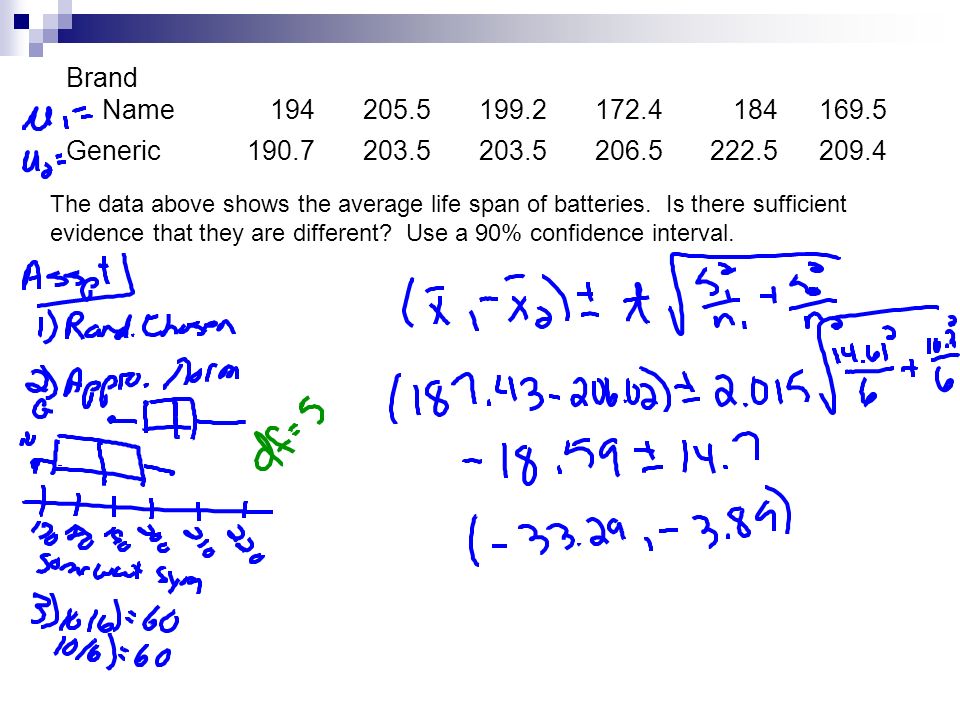 Brand
μ₁= Name 194 205.5 199.2 172.4 184 169.5
μ₂= Generic 190.7 203.5 203.5 206.5 222.5 209.4
The data above shows the average life span of batteries. Is there sufficient
evidence that they are different? Use a 90% confidence interval.
Asspt
1) Rand. Chosen
2) Appro. Norm
G
df = 5
200 210 220
Somewhat Sym
3) 10(6) = 60
10(6) = 60
(x̄₁ - x̄₂) ± t √(s₁²/n₁ + s₂²/n₂)
(187.43 - 206.02) ± 2.015 √(14.61²/6 + 10.3²/6)
- 18.59 ± 14.7
(- 33.29, - 3.89)